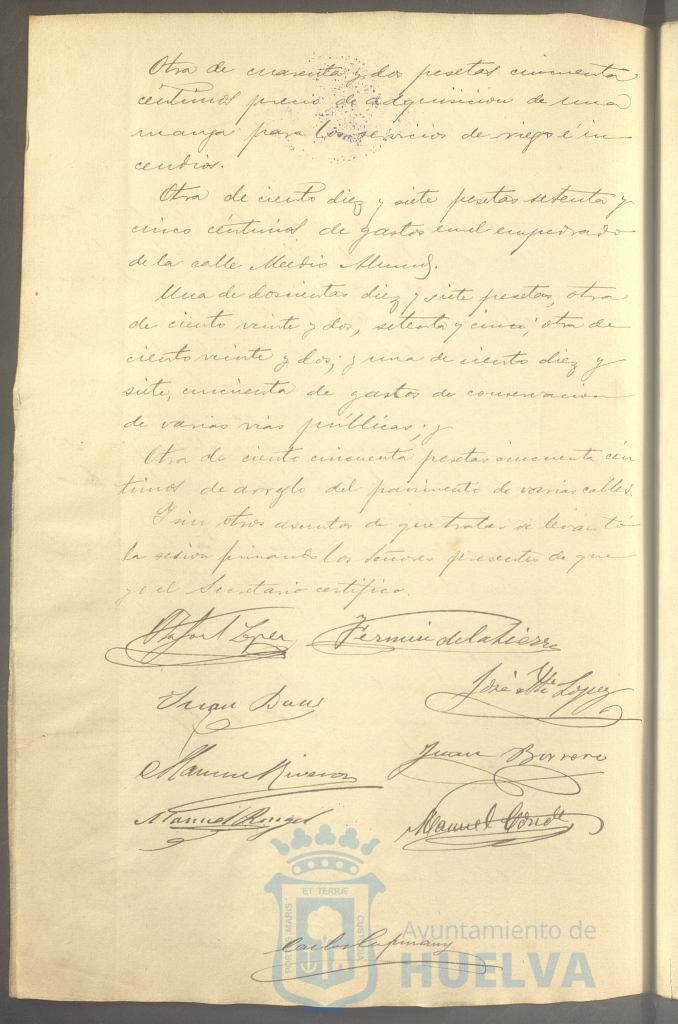 Otra de cuarenta y dos pesetas cincuenta
céntimos precio de adquisicion de una
manga para los servicios de riego é in
cendios.
Otra de ciento diez y siete pesetas setenta y
cinco céntimos de gastos en el empedrado
de la calle Medio Almud.
Una de doscientas diez y siete pesetas, otra
de ciento veinte y dos, setenta y cinco; otra de
ciento veinte y dos; y una de ciento diez y
siete, cincuenta de gastos de conservacion
de varias vias públicas; y
Otra de ciento cincuenta pesetas cincuenta cén
timos de arreglo del pavimento de varias calles.
Y sin otros asuntos de que tratar se levantó
la sesion firmando los Señores presentes de que
yo el Secretario certifico.
Rafael Lopez Fermin de la Sierra
José Mª Lopez
Juan
Juan Borrero
Manuel Rivero
Manuel Rangel Manuel Conde
Carlos
ET TERRÆ
PORTUS MARIS
CUSTODIA
Ayuntamiento de
HUELVA